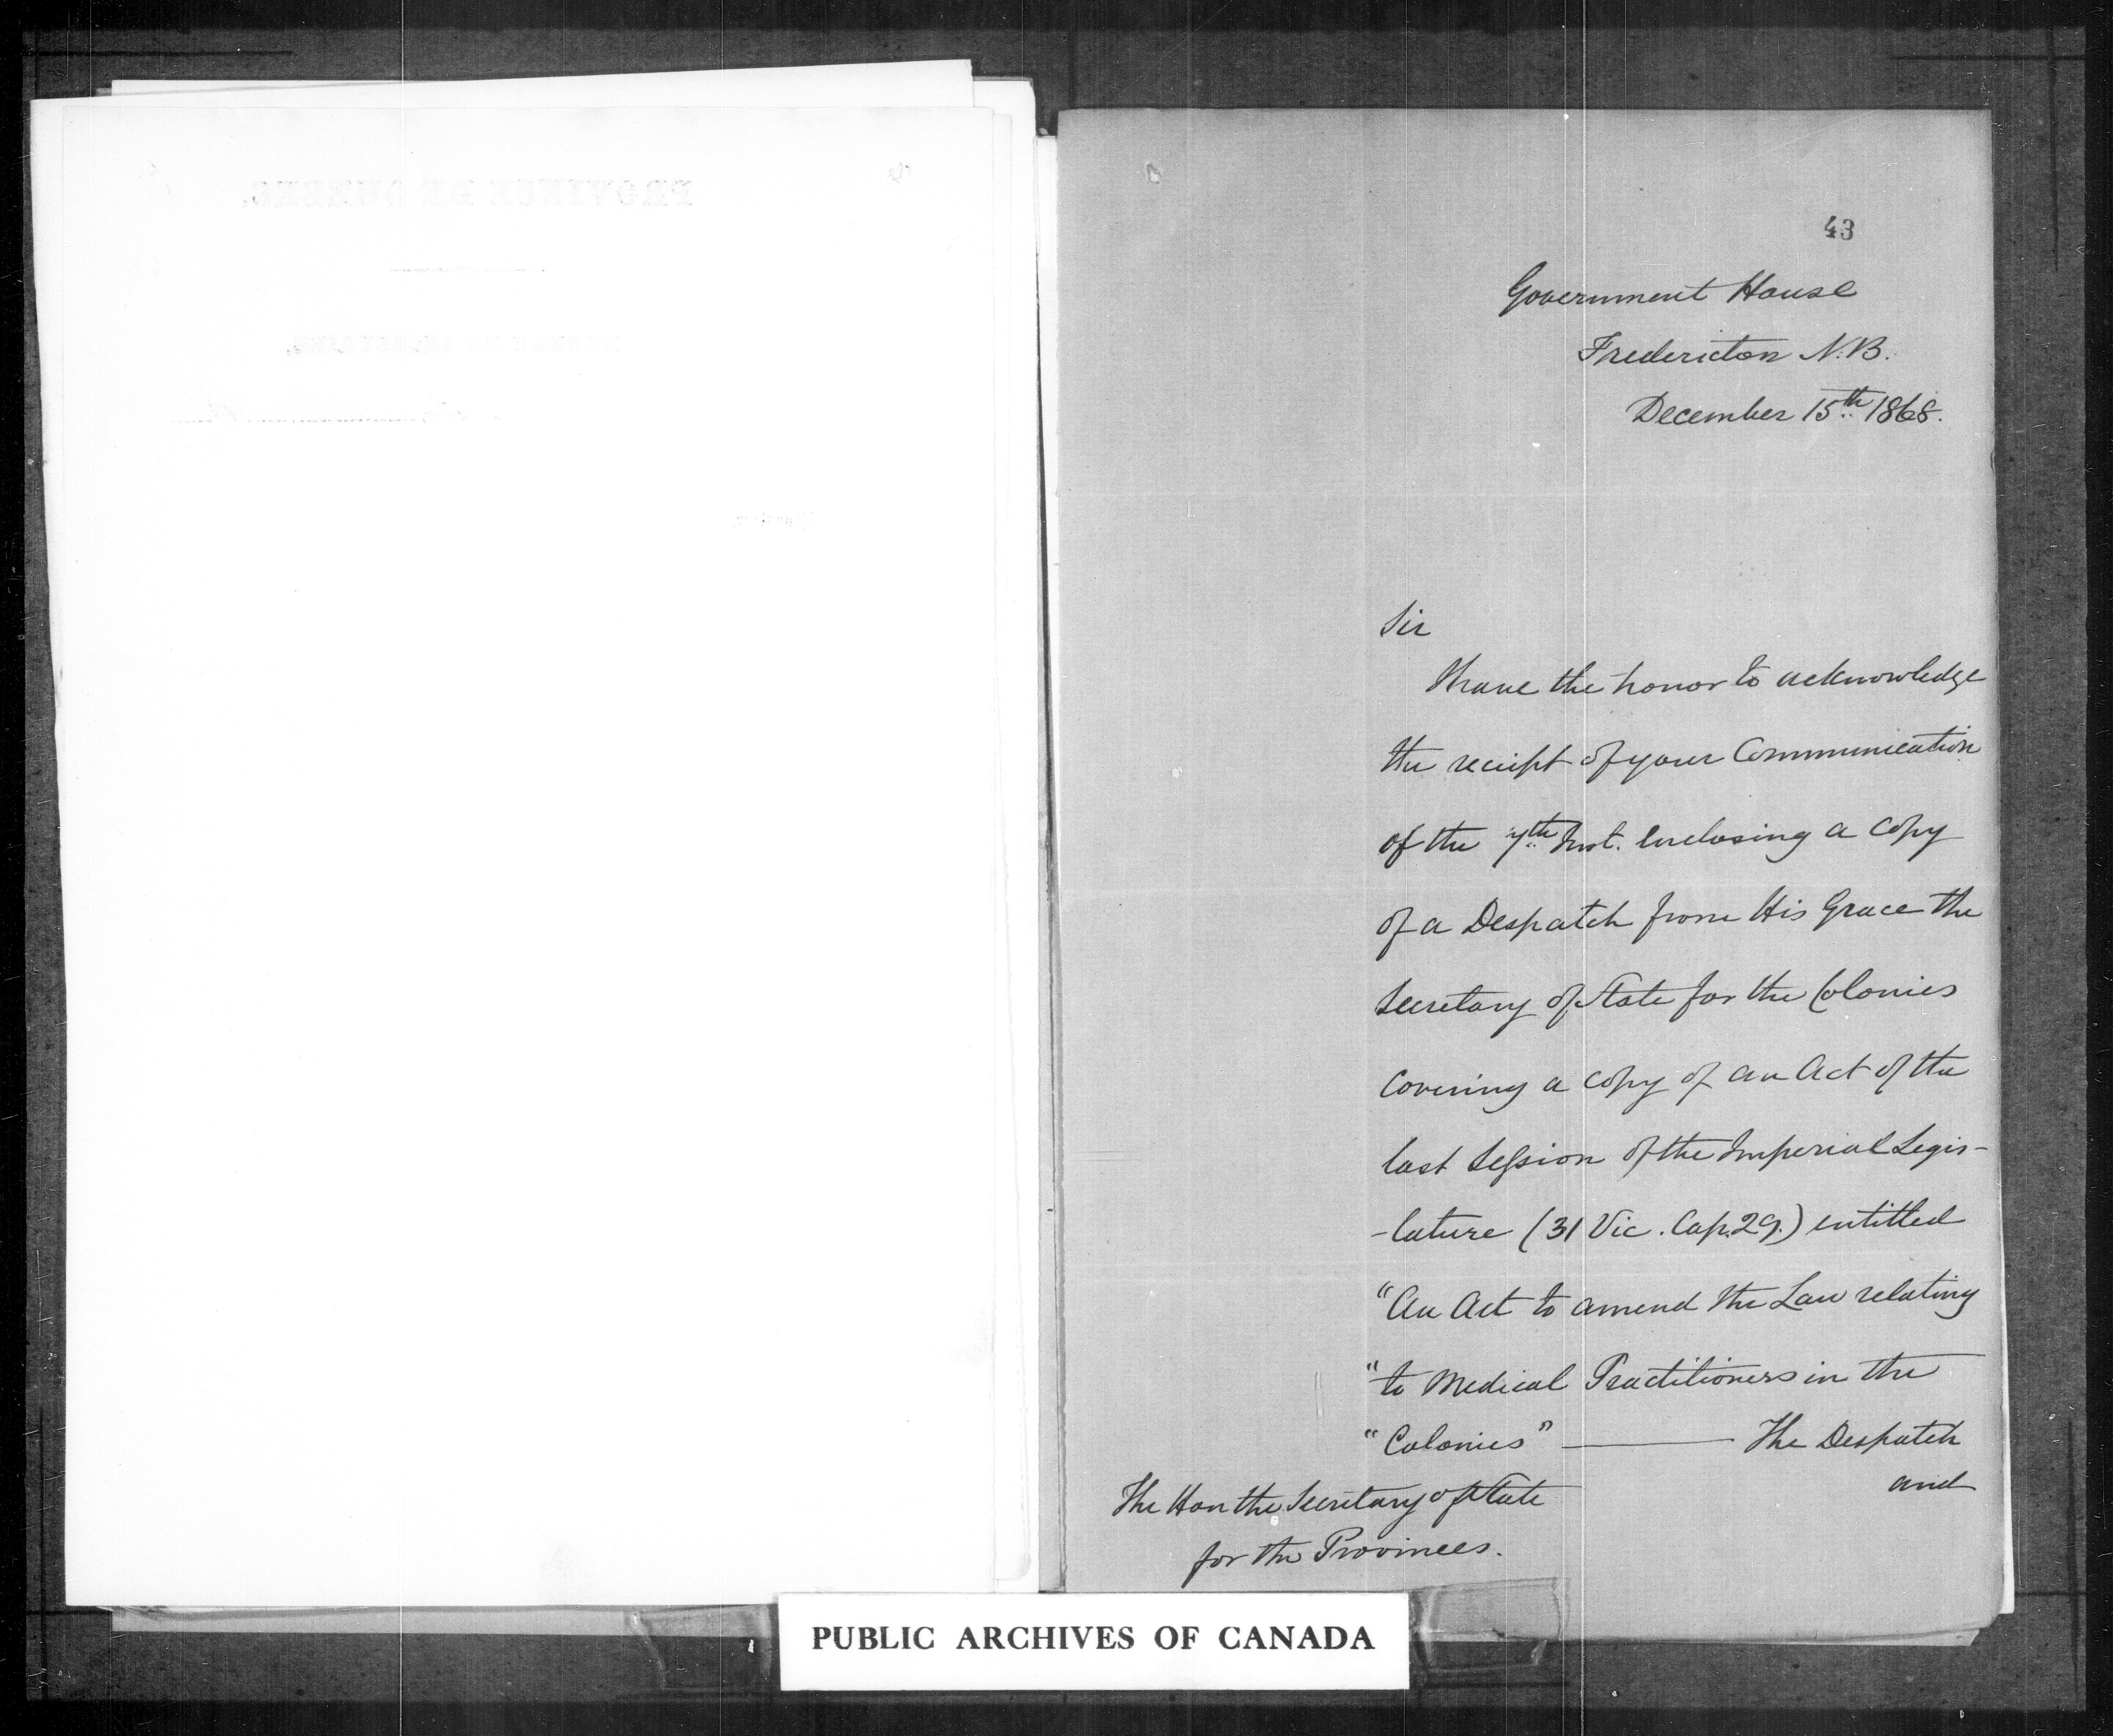 43
Government House
Fredericton N.B.
December 15th 1868.
Sir
I have the honor to acknowledge
the receipt of your Communication
of the 7th Inst. enclosing a copy
of a Despatch from His Grace the
Secretary of State for the Colonies
covering a copy of an Act of the
last Session of the Imperial Legis-
-lature (31 Vic. Cap. 29.) entitled
"An Act to amend the Law relating
"to Medical Practitioners in the
"Colonies" ——— The Despatch
and
The Hon the Secretary of State
for the Provinces.
PUBLIC ARCHIVES OF CANADA